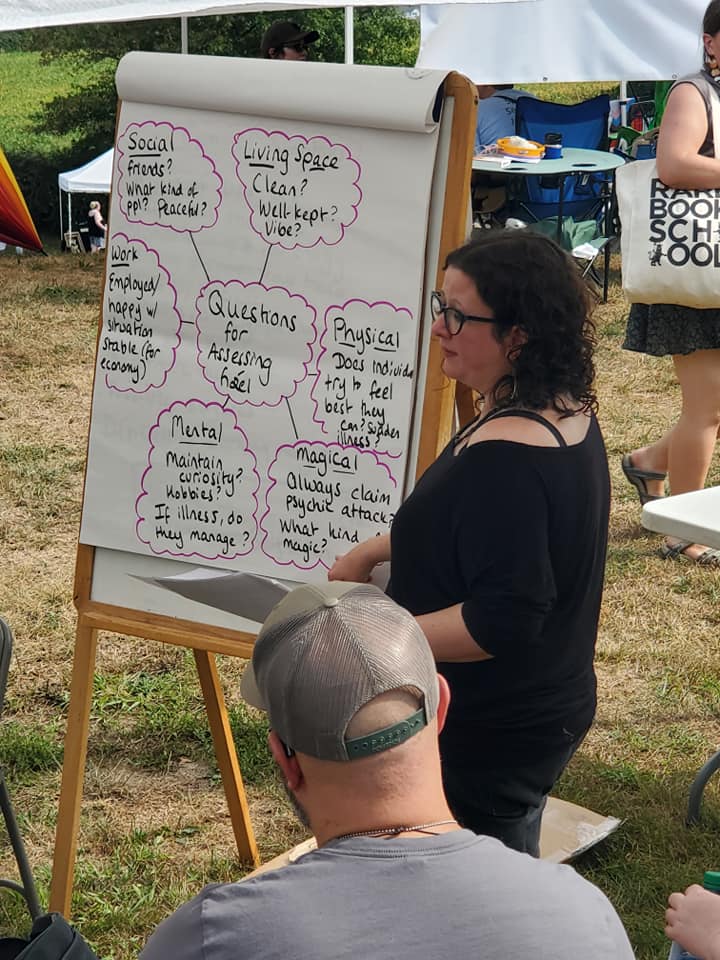 Social
friends?
What kind of
ppl? Peaceful?
Living Space
Clean?
Well-kept?
Vibe?
Work
Employed/
happy w/
situation
stable (for
economy)
Questions
for
Assessing
hǽl
Physical
Does
try to feel
best they
can? Sudden
illness?
Mental
Maintain
curiosity?
Hobbies?
If illness, do
they manage?
Magical
Always claim
psychic attack?
What kind
magic?
RARE
BOOK
SCH
OOL